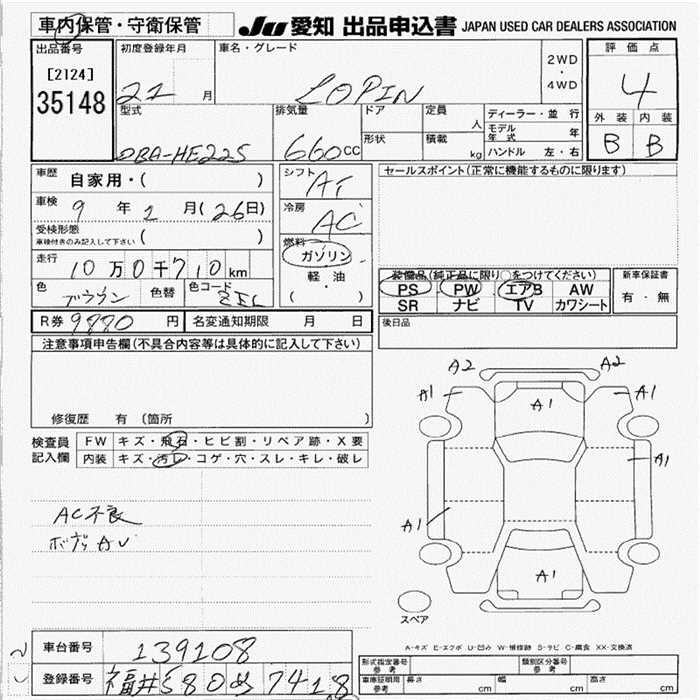 車内保管・守衛保管 JU 愛知 出品申込書 JAPAN USED CAR DEALERS ASSOCIATION
出品番号 初度登録年月 車名・グレード 評価点
[2124]
35148
21 月 LOPIN 2WD・4WD 4
型式 排気量 ドア 定員 人 ディーラー・並 行 外装 内装
モデル年式 年
DBA-HE22S 660cc 形状 積載 kg ハンドル 左・右 B B
車歴 自家用・( ) シフト AT セールスポイント(正常に機能するものに限ります)
車検 9 年 2 月(26日) 冷房 AC
受検形態
車検付きのみ記入して下さい ( ) 燃料 ガソリン
走行 10万0千710km 軽・油 装備品(純正品に限り○をつけてください) 新車保証書
( ・ ) PS PW エアB AW 有・無
色 ブラウン 色替 色コード SR ナビ TV カワシート
R券 9880 円 名変通知期限 月 日 後日品
注意事項申告欄(不具合内容等は具体的に記入して下さい)
A2 A2
A1 A1 A1
修復歴 有 (箇所 )
検査員 FW キズ・飛石・ヒビ割・リペア跡・X要
記入欄 内装 キズ・汚レ・コゲ・穴・スレ・キレ・破レ
A1
AC不良 A1
ボディAU
A1
スペア
A-キズ E-エクボ U-凹み W-補修跡 S-サビ C-腐食 XX-交換済
車台番号 139108
型式指定番号 参考 類別区分番号 参考
登録番号 福井580め7418
車庫証明用 参考 長さ cm 幅 cm 高さ cm